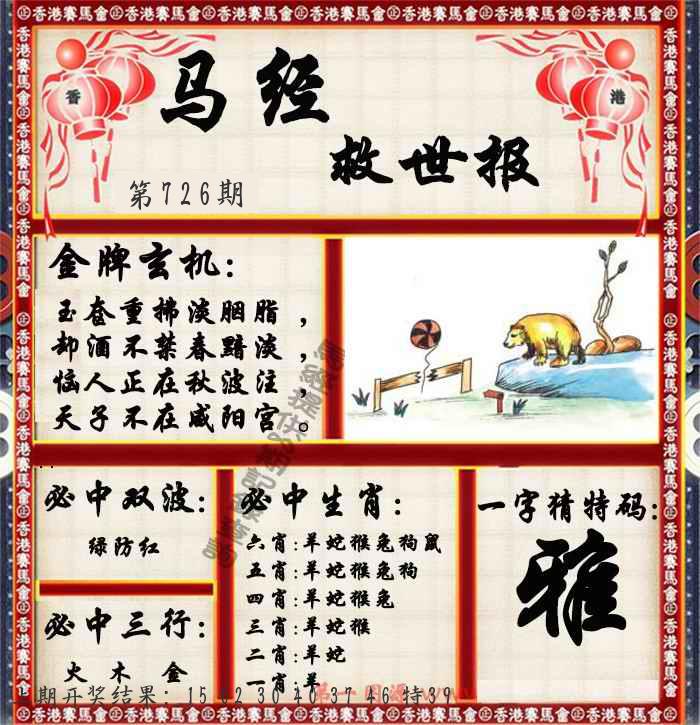 香港賽馬會
香
港
马经
救世报
第726期
金牌玄机:
玉奁重拂淡胭脂，
却酒不禁春黯淡，
恼人正在秋波注，
天子不在咸阳宫。
必中双波:
绿防红
必中三行:
火木金
必中生肖:
六肖:羊蛇猴兔狗鼠
五肖:羊蛇猴兔狗
四肖:羊蛇猴兔
三肖:羊蛇猴
二肖:羊蛇
一肖:羊
一字猜特码:
雅
期开奖结果: 15 02 30 40 37 46 特39